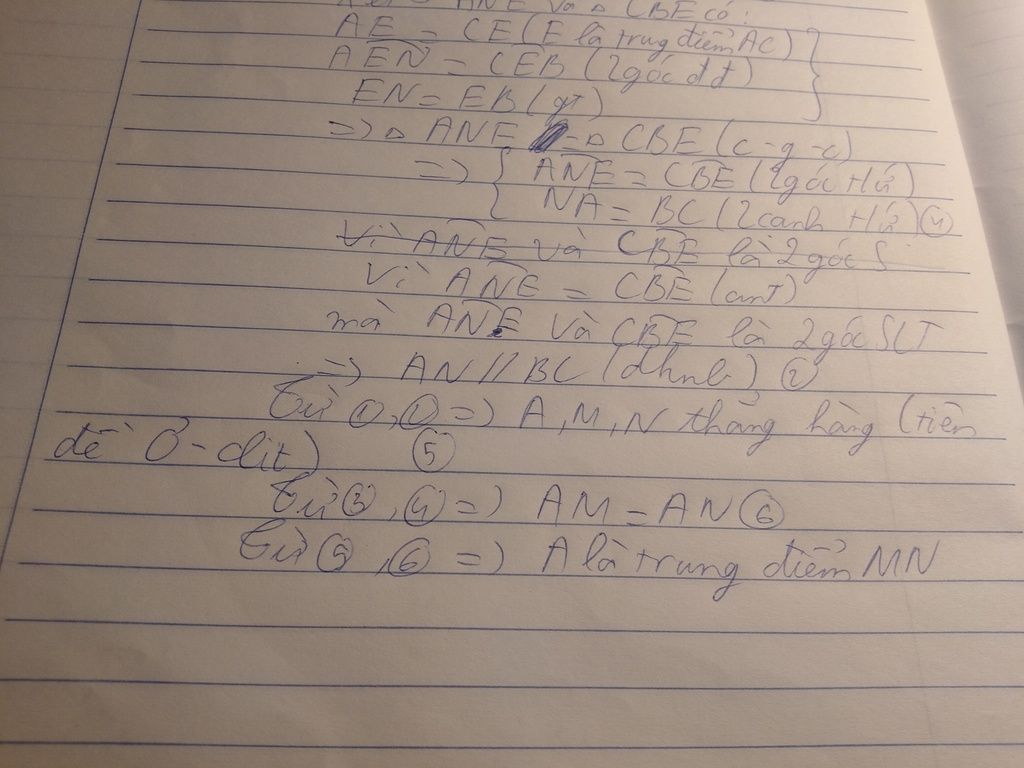 ANE và △ CBE có:
AE = CE (E là trung điểm AC)
AEN = CEB (2 góc đđ)
EN = EB (gt)
=> △ ANE = △ CBE (c-g-c)
=> { ANE = CBE (2 góc tứ)
NA = BC (2 cạnh tứ) ④
Vì ANE và CBE là 2 góc S
Vì ANE = CBE (cmt)
mà ANE và CBE là 2 góc SLT
=> AN // BC (dhnb) ②
Từ ①, => A, M, N thẳng hàng (tiên
đề Ơ-clit) ⑤
Từ ③, ④ => AM = AN ⑥
Từ ⑤, ⑥ => A là trung điểm MN